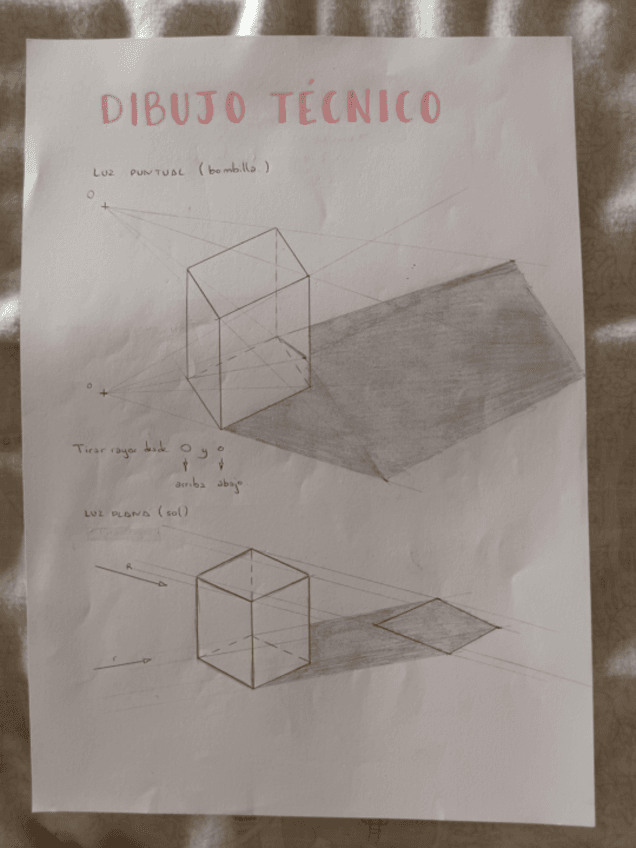 DIBUJO TÉCNICO
LUZ PUNTUAL (bombilla)
O
o
Tirar rayos desde O y o
arriba abajo
LUZ PLANA (sol)
R
r